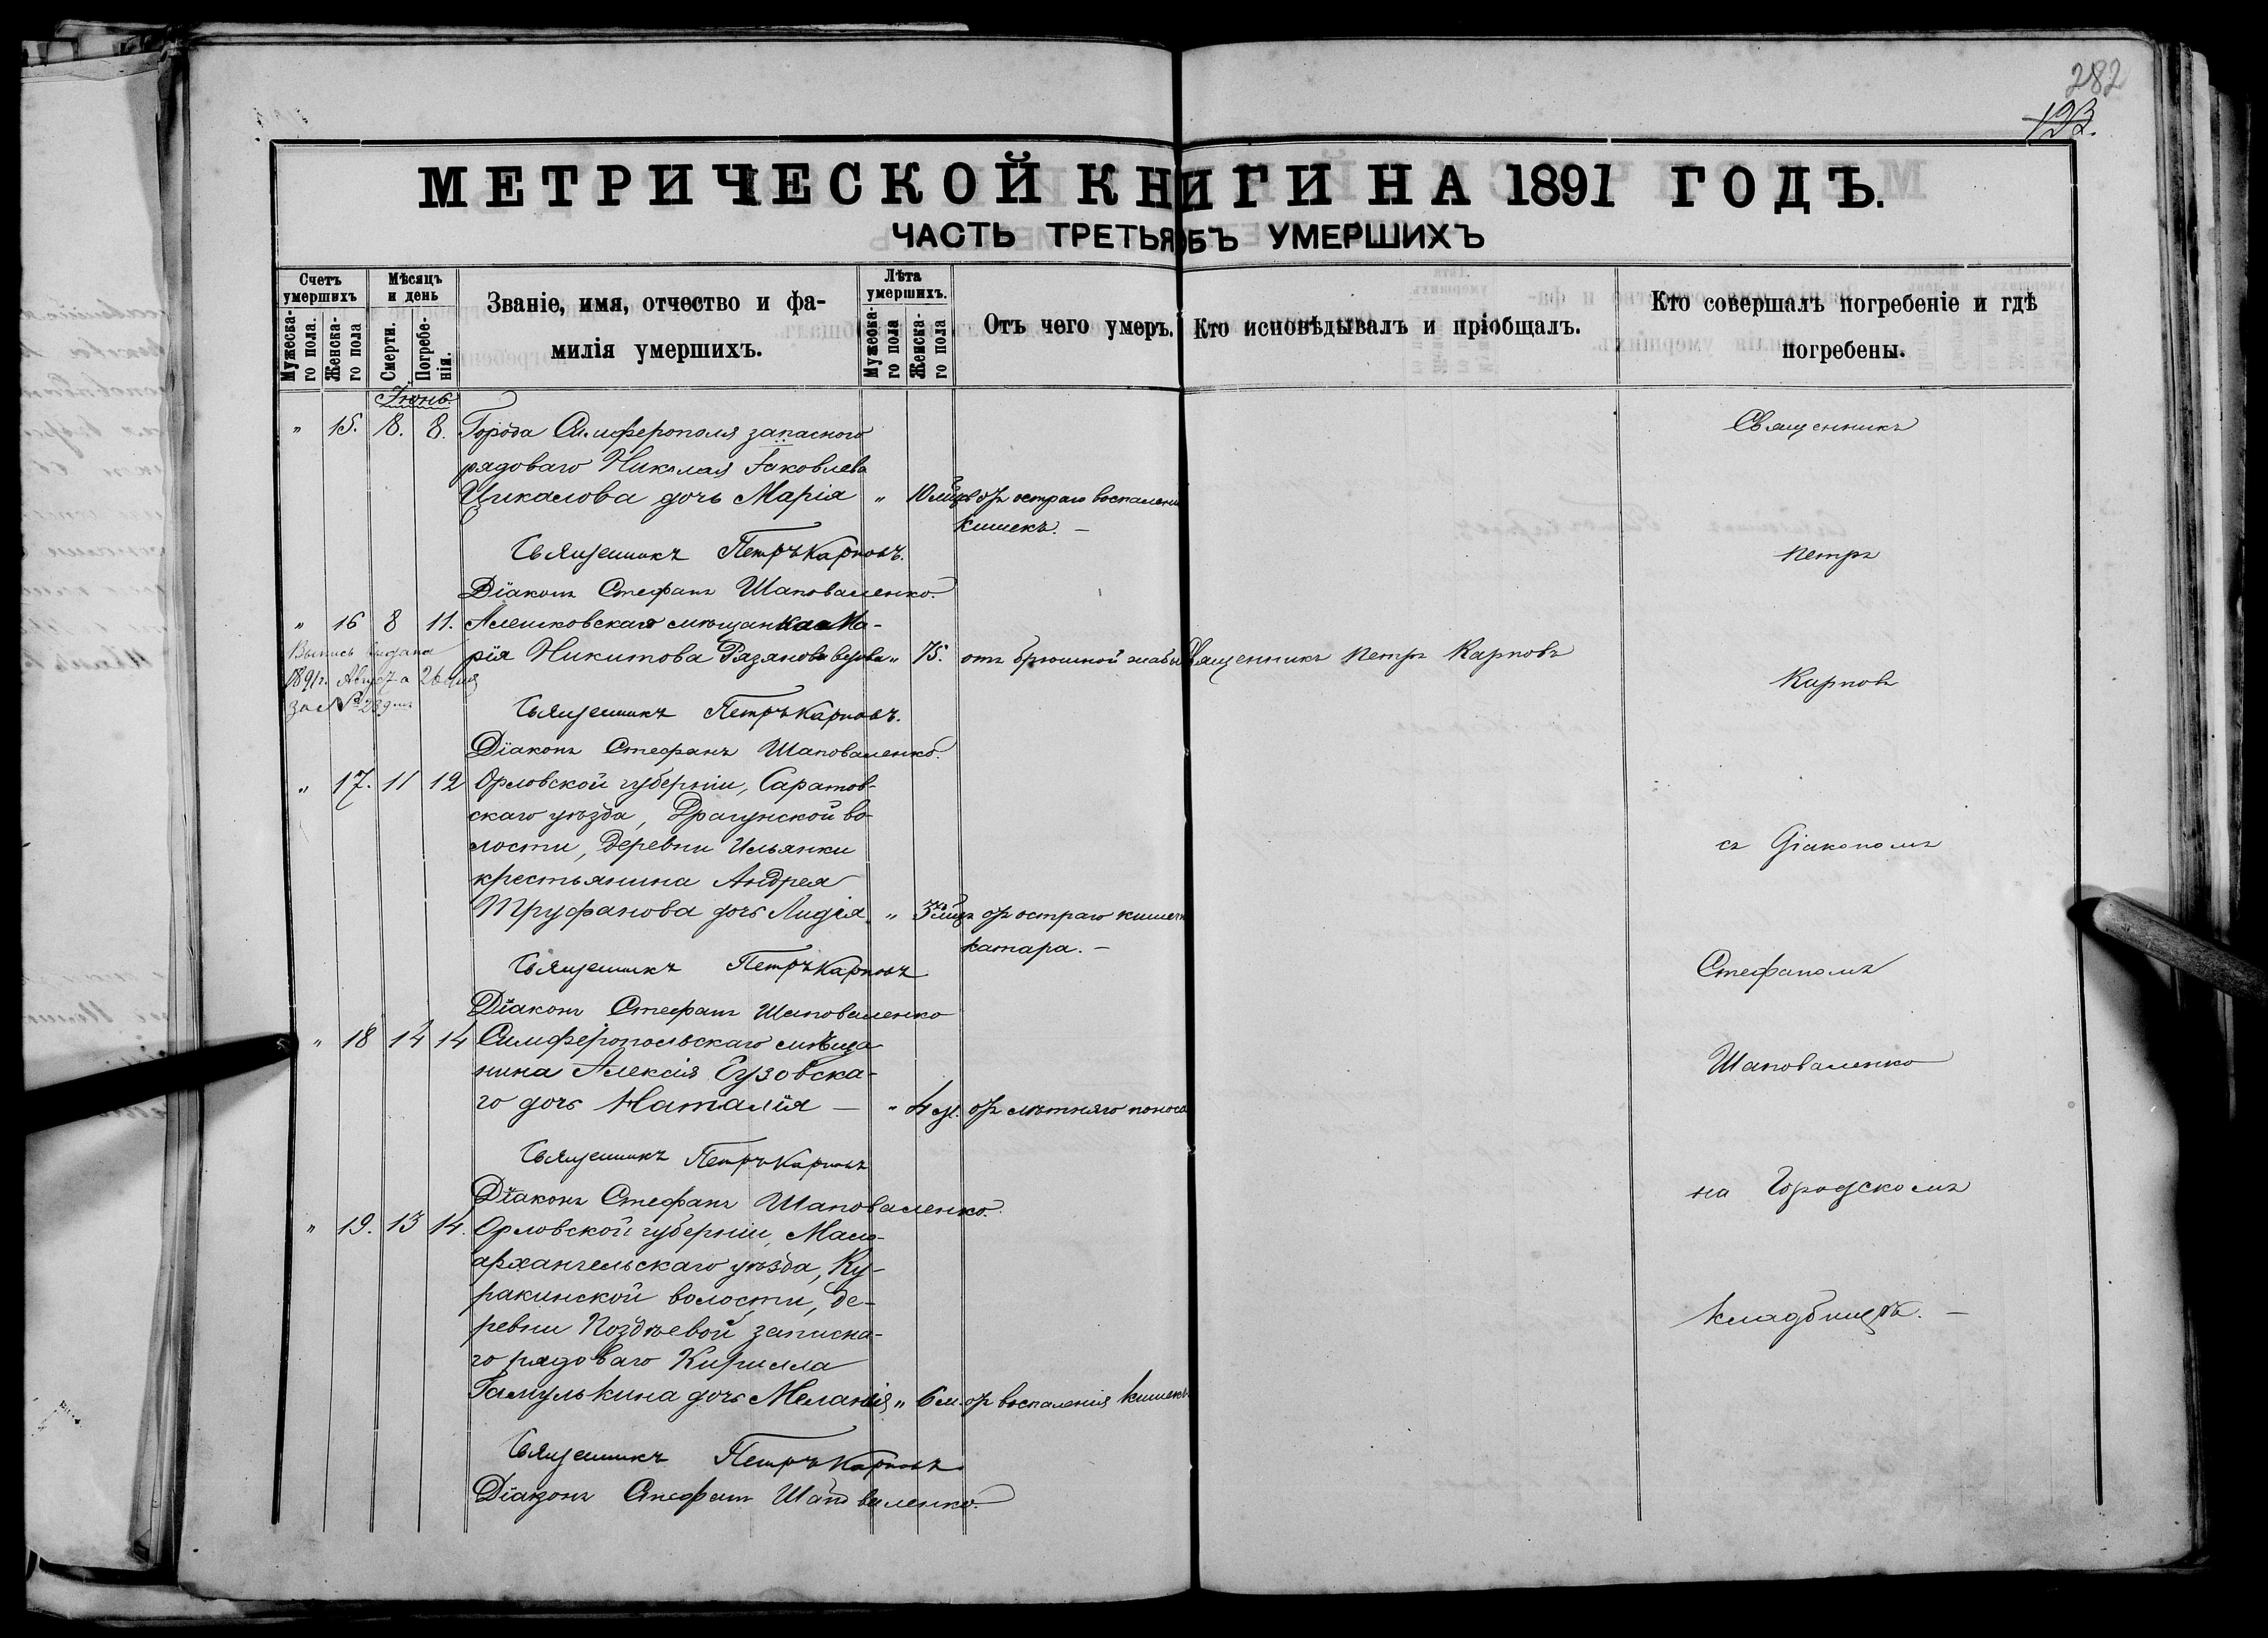 282
193.
МЕТРИЧЕСКОЙ КНИГИ НА 1891 ГОДЪ.
ЧАСТЬ ТРЕТЬЯ ОБЪ УМЕРШИХЪ
Счетъ умершихъ
Мужеска-го пола.
Женска-го пола
Мѣсяцъ и день
Смерти.
Погребе-нія.
Званіе, имя, отчество и фа-
милія умершихъ.
Лѣта умершихъ.
Мужеска-го пола
Женска-го пола
Отъ чего умеръ.
Кто исповѣдывалъ и пріобщалъ.
Кто совершалъ погребеніе и гдѣ
погребены.
Іюнь
" 15. 8. 8. Города Симферополя запаснаго
рядоваго Николая Іаковлева
Цикалова дочь Марія " 10 мѣц. отъ остраго воспаленія
кишекъ. —
Священникъ Петръ Карповъ.
Діаконъ Стефанъ Шаповаленко.
" 16 8 11. Алешковская мѣщанка Ма-
рія Никитова Рязанова вдова " 75. отъ брюшной жабы Священникъ Петръ Карповъ
Выпись выдана
1891 г. Августа 26 дня
за № 289
Священникъ Петръ Карповъ.
Діаконъ Стефанъ Шаповаленко.
" 17. 11 12 Орловской губерніи, Саратов-
скаго уѣзда, Драгунской во-
лости, деревни Ильянки
крестьянина Андрея
Труфанова дочь Лидія. " 3 мѣц. отъ остраго кишечн
катара. —
Священникъ Петръ Карповъ
Діаконъ Стефанъ Шаповаленко
" 18 14 14 Симферопольскаго мѣща
нина Алексія Бузовска-
го дочь Наталія — " 4 м. отъ лѣтняго поноса
Священникъ Петръ Карповъ
Діаконъ Стефанъ Шаповаленко.
" 19. 13 14. Орловской губерніи, Мало-
архангельскаго уѣзда, Ку-
ракинской волости, де-
ревни Поздѣевой запасна-
го рядоваго Кирилла
Гамулькина дочь Меланія " 6 м. отъ воспаленія кишекъ
Священникъ Петръ Карповъ
Діаконъ Стефанъ Шаповаленко.
Священникъ
Петръ
Карповъ
съ Діакономъ
Стефаномъ
Шаповаленко
на Городскомъ
кладбищѣ. —